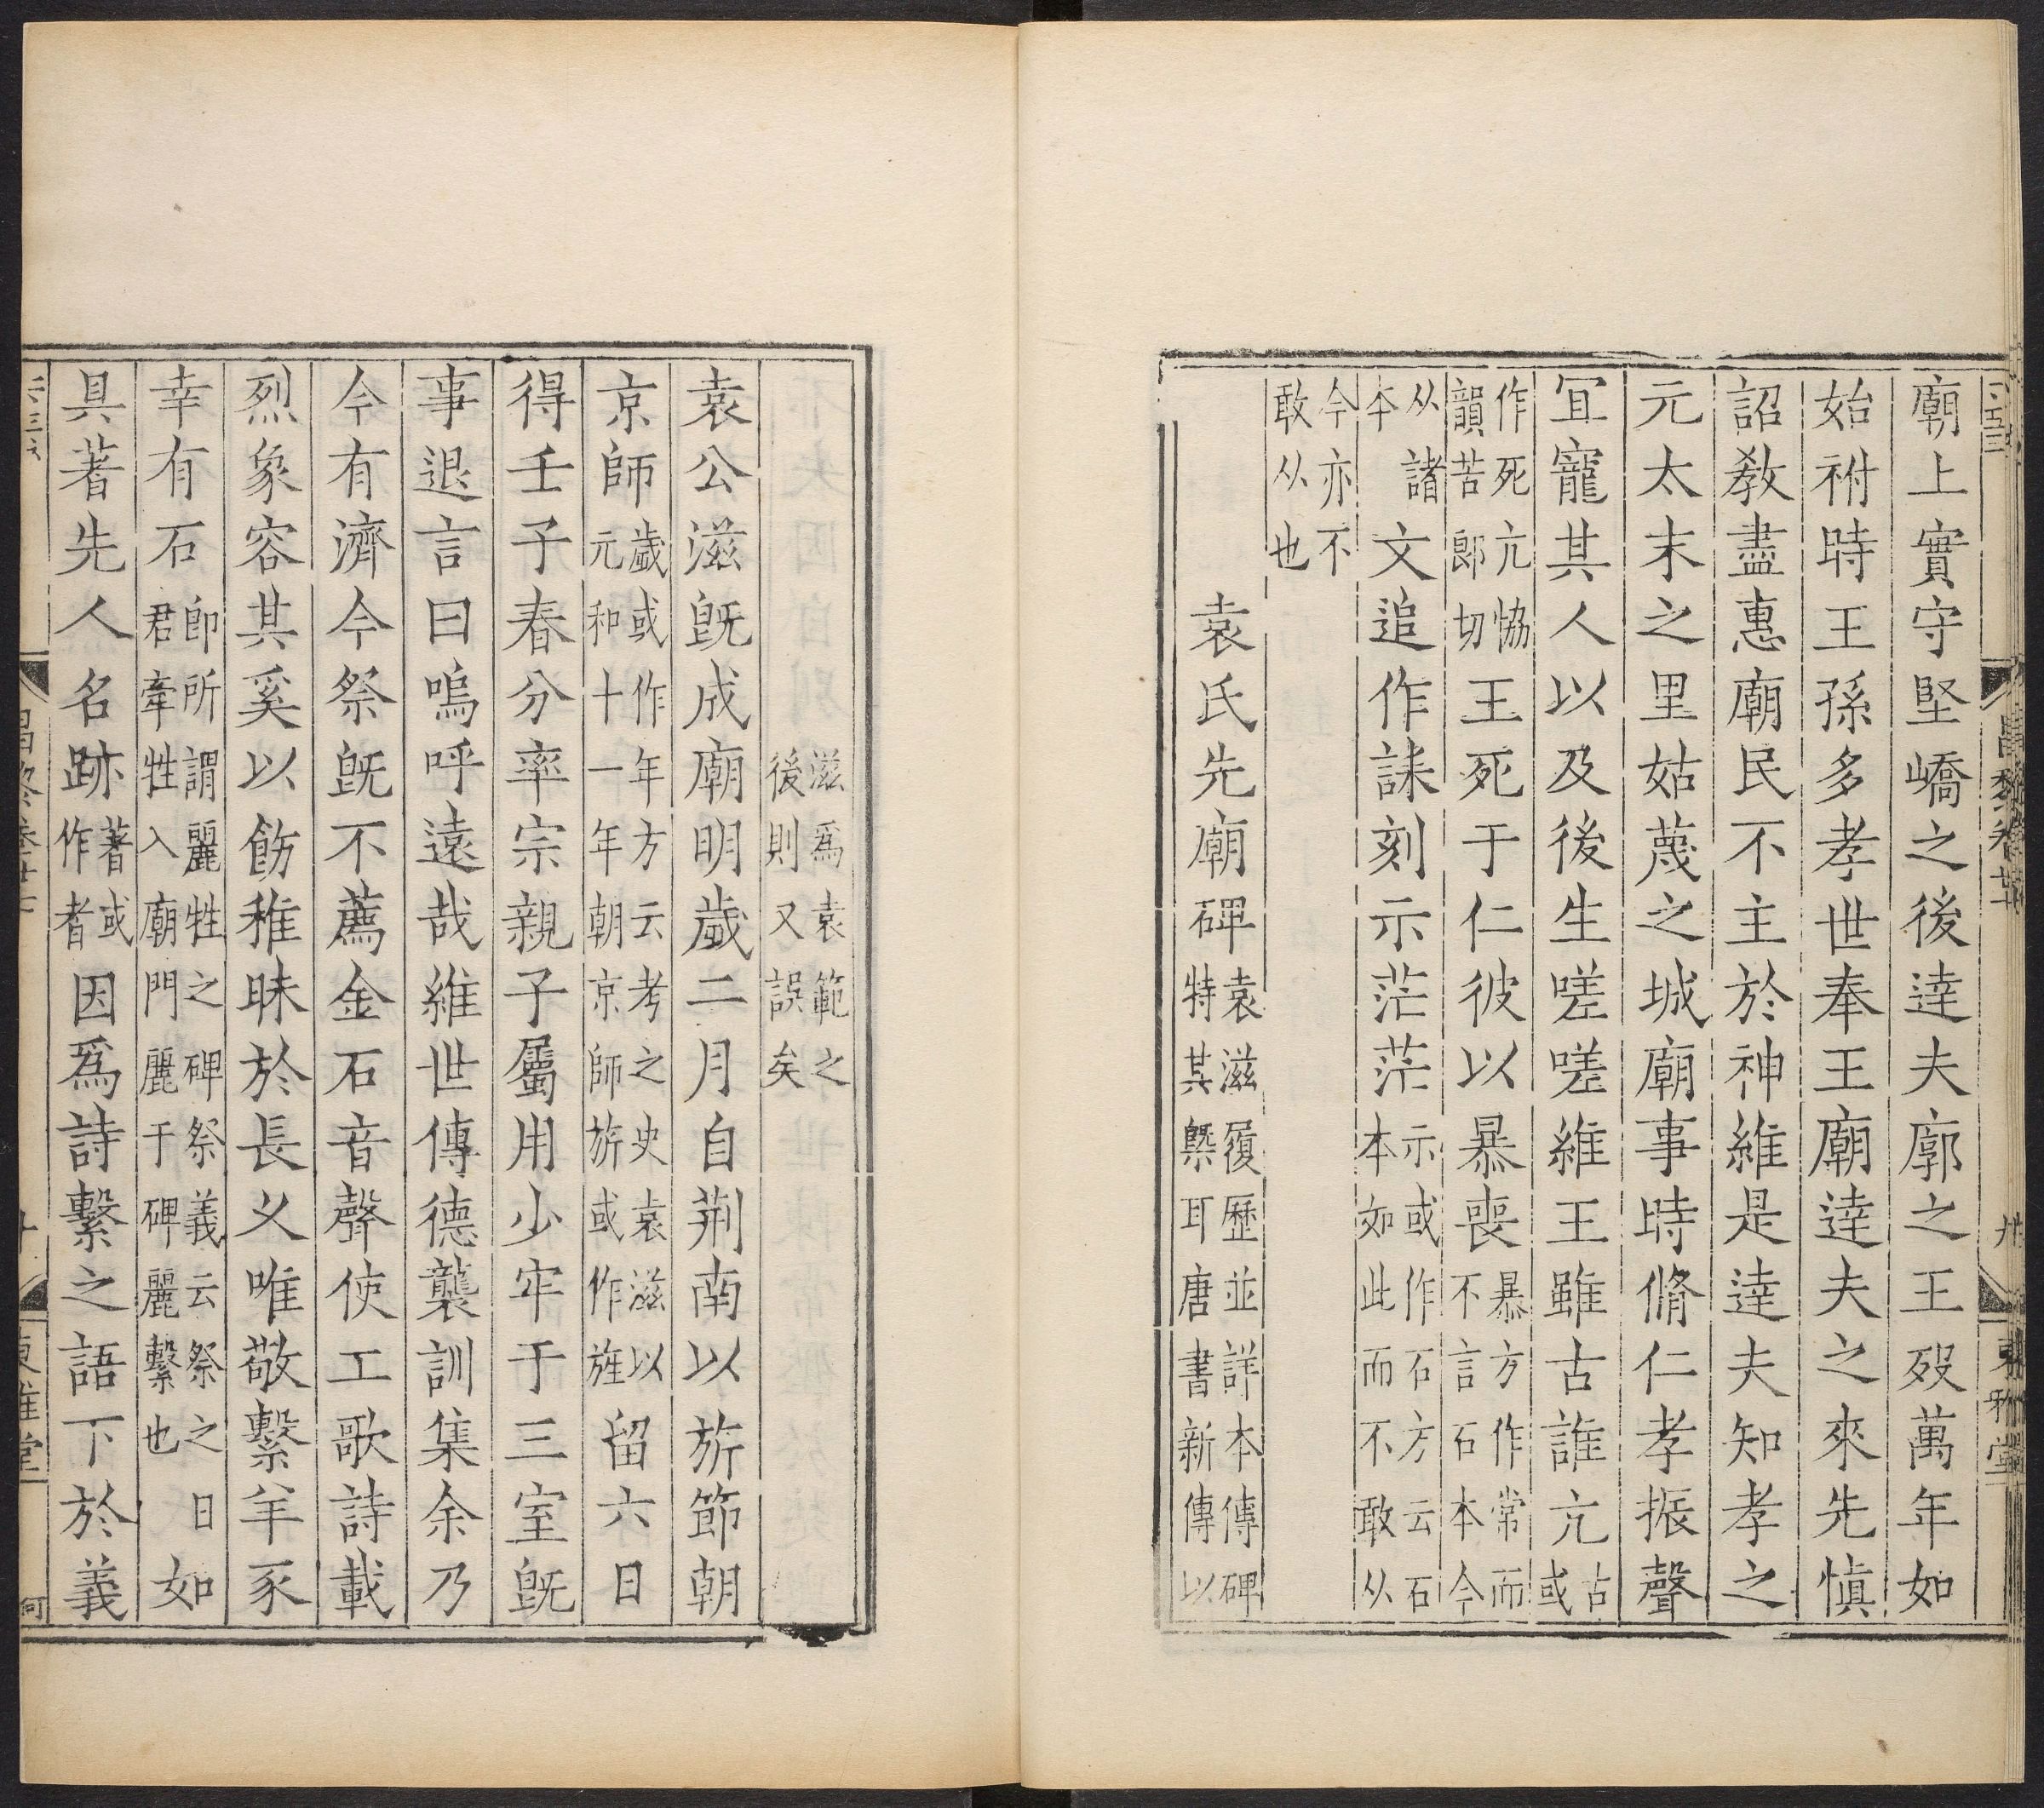 廟上實守堅嶠之後達夫廓之王歿萬年如
始祔時王孫多孝世奉王廟達夫之來先愼
詔教盡惠廟民不主於神維是達夫知孝之
元太末之里姑蔑之城廟事時脩仁孝振聲
宜寵其人以及後生嗟嗟維王雖古誰亢古或
作死亢恊韻苦郎切王死于仁彼以暴喪暴方作常而不言石本今
从諸本文追作誄刻示茫茫示或作石方云石本如此而不敢从
今亦不敢从也
袁氏先廟碑袁滋履歷並詳本傳碑特其槩耳唐書新傳以
滋爲袁範之後則又誤矣
袁公滋旣成廟明歲二月自荆南以旂節朝
京師歲或作年方云考之史袁滋以元和十一年朝京師旂或作旌留六日
得壬子春分率宗親子屬用少牢于三室旣
事退言曰嗚呼遠哉維世傳德襲訓集余乃
今有濟今祭旣不薦金石音聲使工歌詩載
烈象容其奚以飭稚昧於長乂唯敬繫羊豕
幸有石卽所謂麗牲之碑祭義云祭之日君牽牲入廟門麗于碑麗繫也如
具著先人名跡著或作者因爲詩繫之語下於義
東雅堂